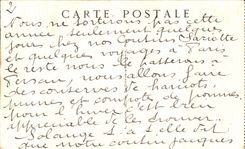 2
CARTE POSTALE
Nous ne sortirons pas cette
année, seulement quelques
jours chez nos cousins Mariotte
et quelques voyages à Paris
le reste nous le passerons à
nous allons faire
des conserves de haricots,
prunes et compote de pommes
pour l'hiver c'est bien
appréciable de le trouver.
Solange t'a-t-elle dit
que notre cousin Jacques